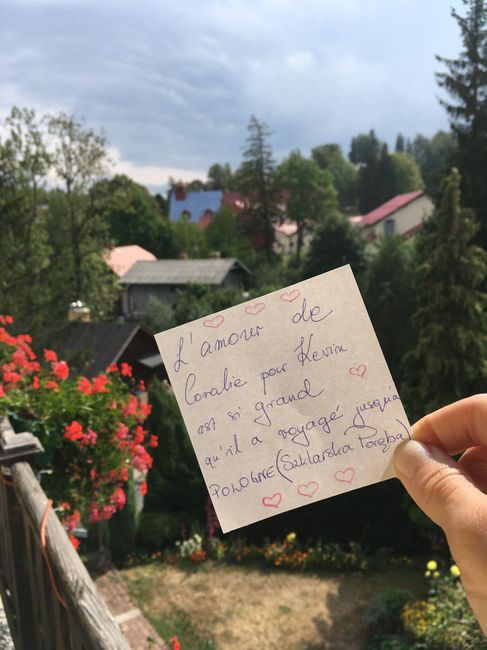 L'amour de
Coralie pour Kevin
est si grand
qu'il a voyagé jusqu'à
POLOGNE (Szklarska Poręba)